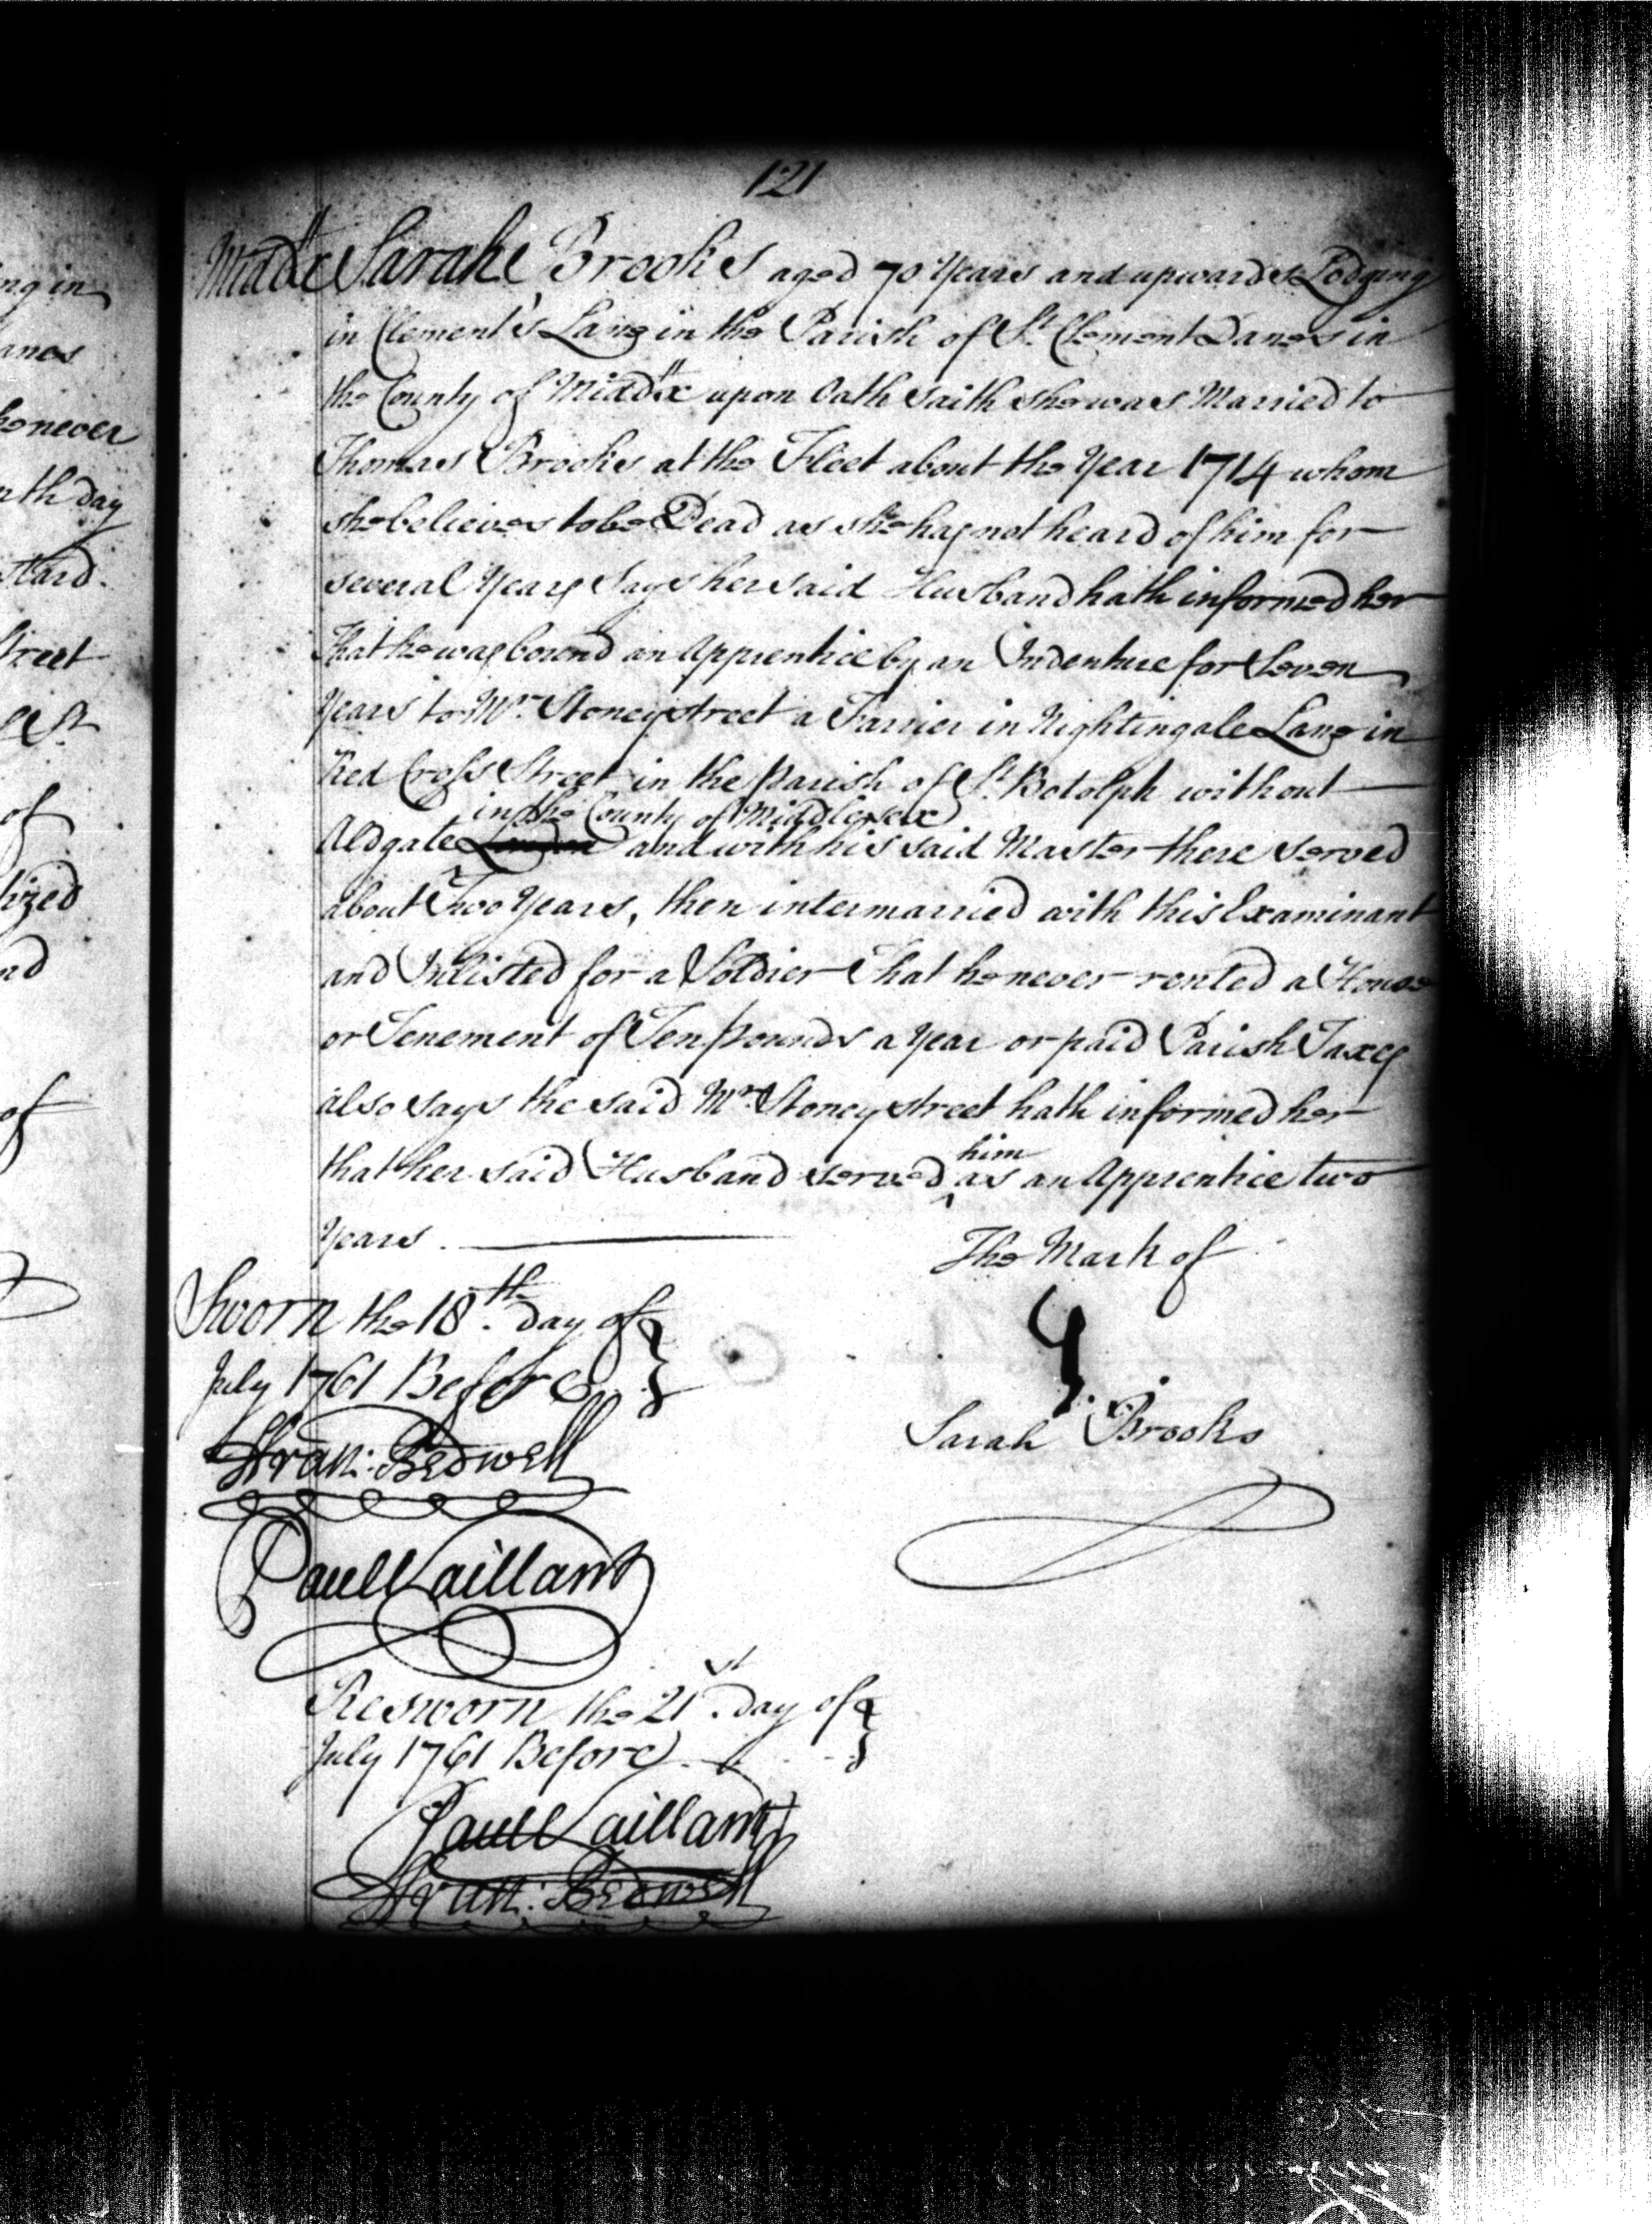 121
Midd.x Sarah Brooks aged 70 Years and upwards Lodging
in Clement's Lane in the Parish of St. Clement Danes in
the County of Midd.x upon Oath saith she was Married to
Thomas Brooks at the Fleet about the Year 1714 whom
she believes to be Dead as she has not heard of him for
several Years Says her said Husband hath informed her
That he was bound an Apprentice by an Indenture for Seven
Years to Mr. Stoneystreet a Farrier in Nightingale Lane in
Red Cross Street in the Parish of St. Botolph without
in the County of Middlesex
Aldgate London and with his said Master there served
about Two Years, then intermarried with this Examinant
and Inlisted for a Soldier That he never rented a House
or Tenement of Ten pounds a Year or paid Parish Taxes
also says the said Mr. Stoneystreet hath informed her
him
that her said Husband served as an Apprentice two
Years.
The Mark of
Sarah Brooks
Sworn the 18th. day of
July 1761 Before
Fran: Bedwell
Paul Vaillant
Resworn the 21st. day of
July 1761 Before
Paul Vaillant
Fran: Bedwell
ng in
anes
he never
nth day
Street
& St.
of
tized
nd
of